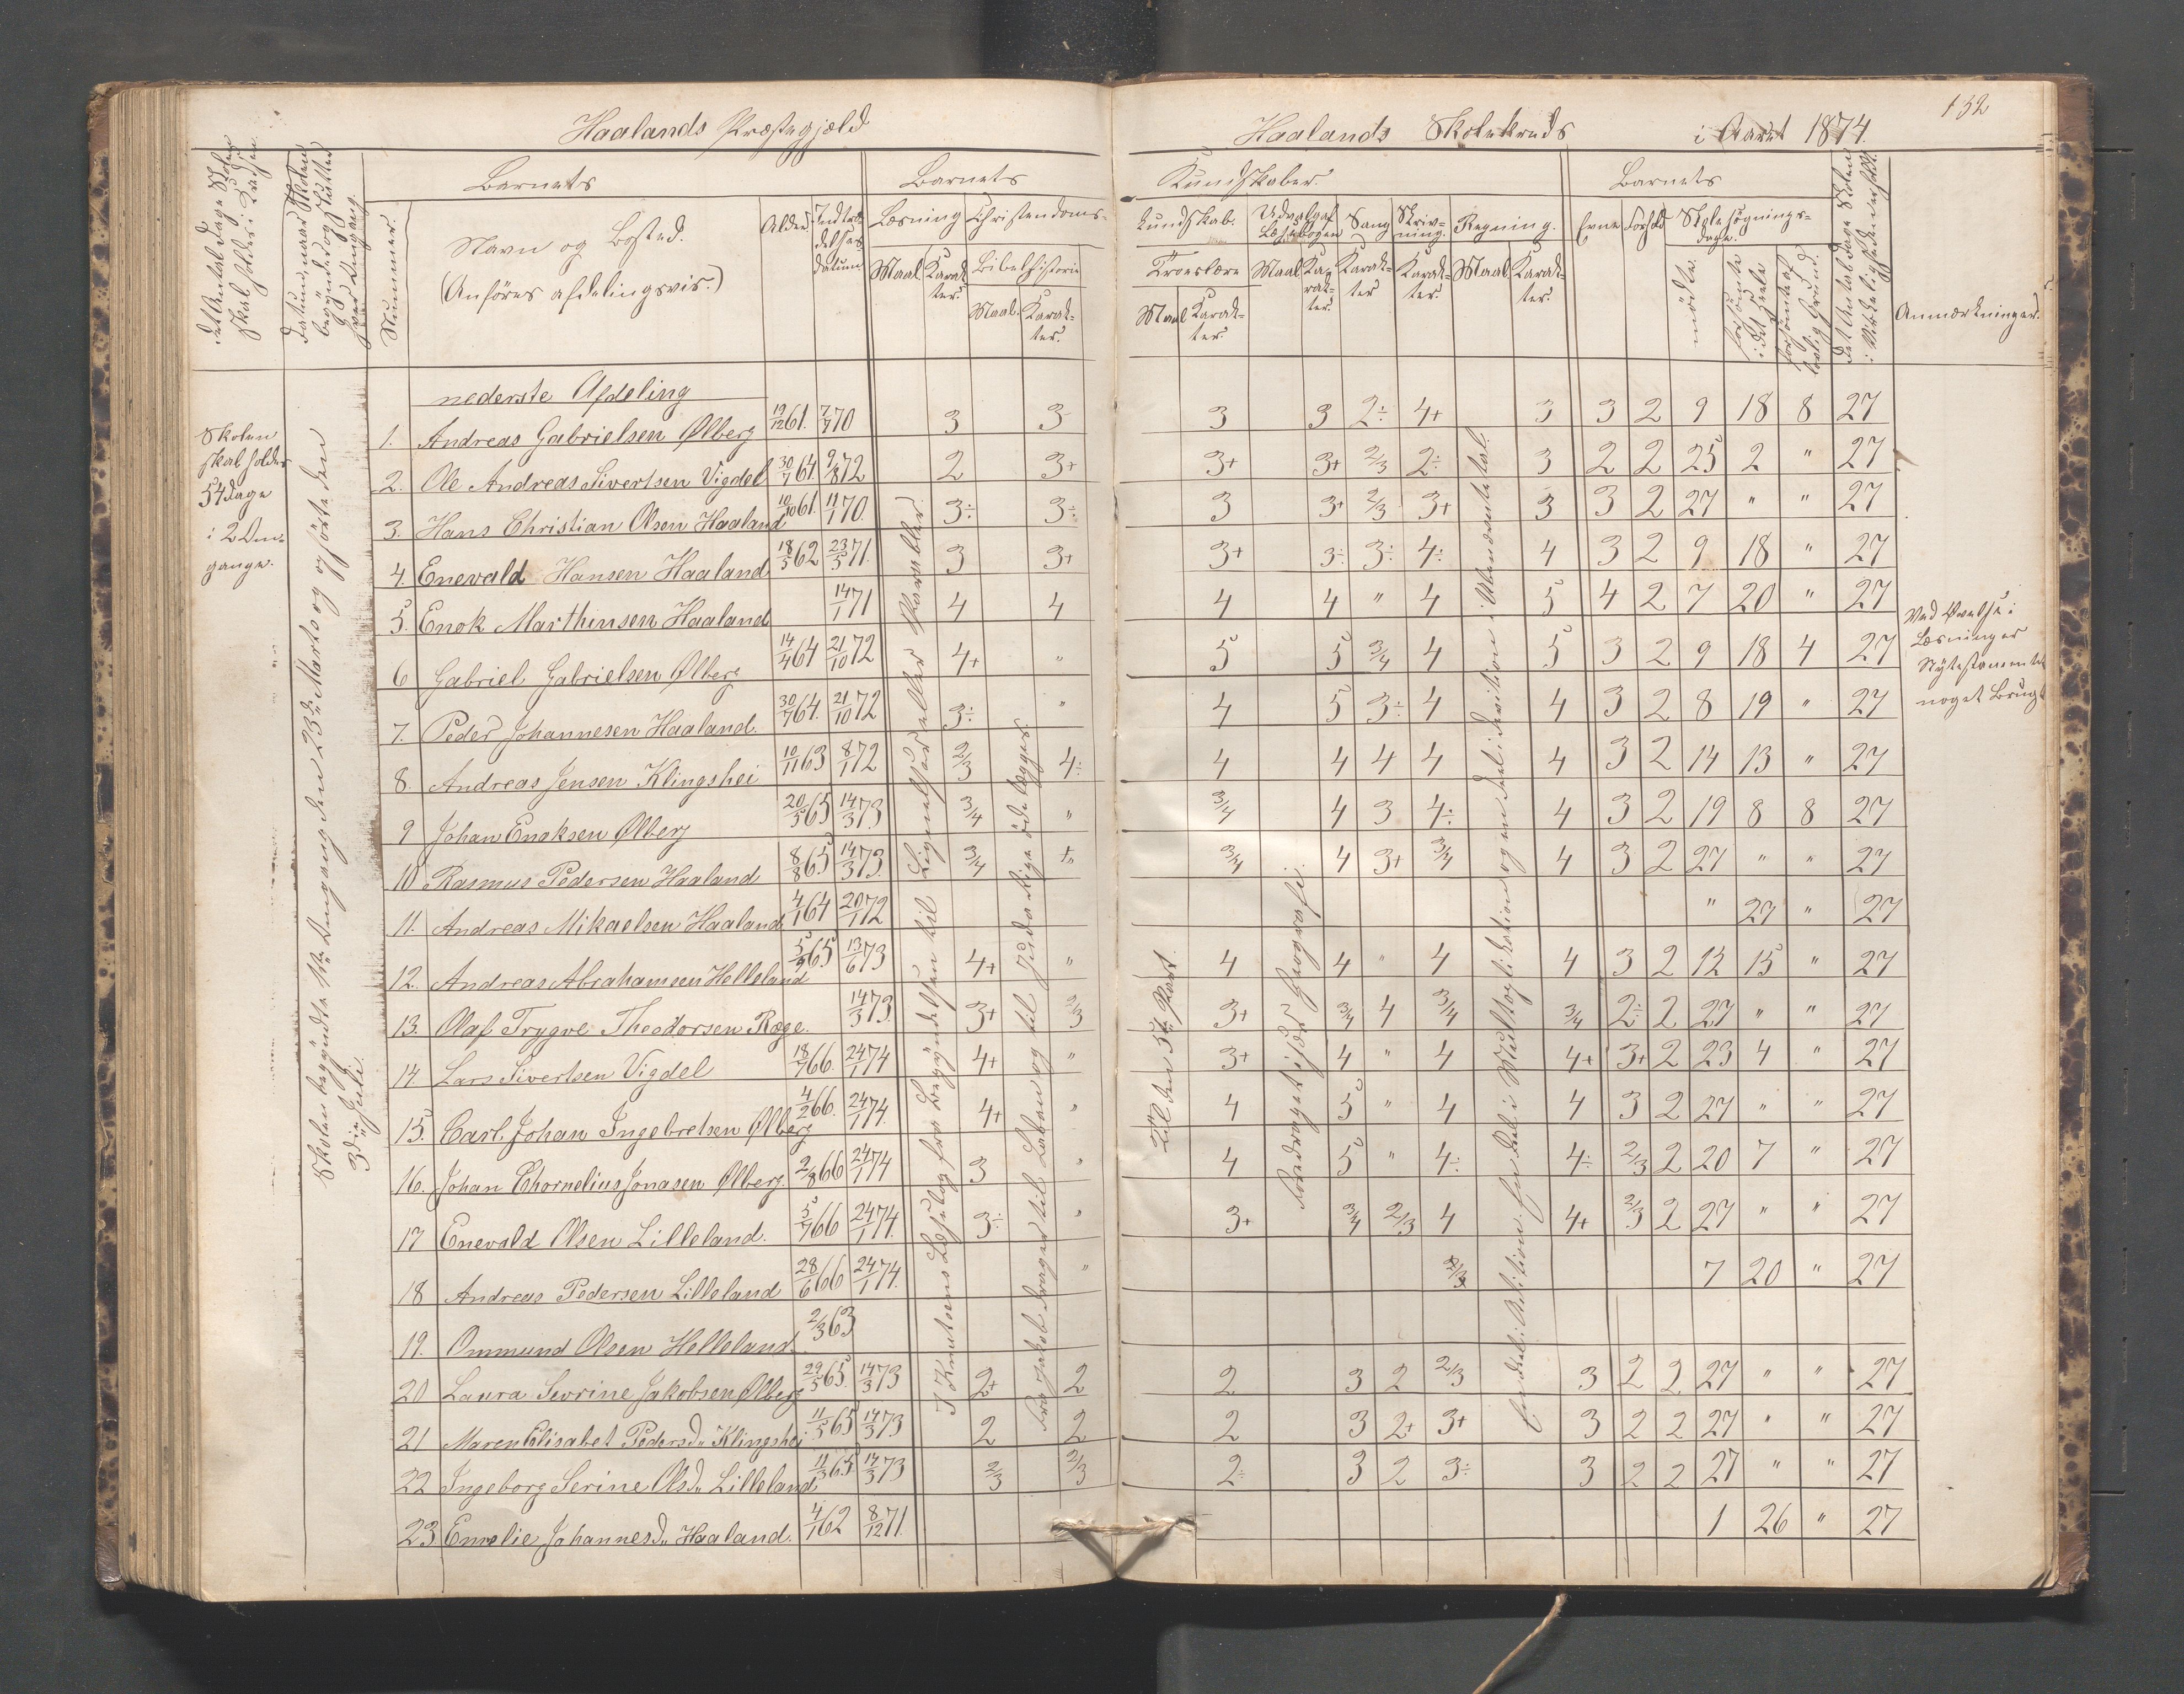 Haalands Præstegjæld
Haalands Skolekreds i Aaret 1874.
132
Det Antal Dage Skolen skal holdes i Kredsen.
Datum, naar Skolen begynder og slutter hver Omgang.
Nummer.
Barnets
Navn og Bosted.
(Anføres afdelingsvis.)
Alder.
Indtrædelses datum.
Barnets
Læsning
Maal.
Karakter.
Christendoms-
Bibelhistorie
Maal.
Karakter.
Kundskaber.
kundskab.
Troeslære
Maal
Karakter.
Udvalg af Læsebogen
Maal
Karakter.
Sang
Karakter
Skrivning.
Karakter.
Regning.
Maal.
Karakter.
Barnets
Evne
Forhold
Skolesøgningsdage.
mødte.
forsømte i det Hele
forsømte af lovlig Grund.
Det Antal Dage Skolen i Virkeligheden er holdt.
Anmærkninger.
Skolen
skal holdes
54 Dage
i 2 Om-
gange.
Skolen begyndte 1ste Omgang den 23de Marts og sluttede den
3die Juli.
nederste Afdeling
1. Andreas Gabrielsen Ølberg 19/12 61. 7/7 70 3 3 3 3 2÷ 4+ 3 3 2 9 18 8 27
2. Ole Andreas Sivertsen Vigdel 30/7 64 9/8 72 2 3+ 3+ 3+ 2/3 2÷ 3 2 2 25 2 " 27
3. Hans Christian Olsen Haaland 10/10 61. 11/1 70. 3÷ 3÷ 3 3+ 2/3 3+ 3 3 2 27 " " 27
4. Enevald Hansen Haaland 18/3 62 23/5 71. 3 3+ 3+ 3÷ 3÷ 4÷ 4 3 2 9 18 " 27
5. Enok Marthinsen Haaland 14/1 71 4 4 4 4 " 4 5 4 2 7 20 " 27
6 Gabriel Gabrielsen Ølberg 14/4 64 21/10 72 4+ " 5 5 3/4 4 5 3 2 9 18 4 27
7. Peder Johannesen Haaland. 30/7 64. 21/10 72 3÷ " 4 5 3÷ 4 4 3 2 8 19 " 27
8. Andreas Jensen Klingshei 10/11 63 8/1 72 2/3 4÷ 4 4 4 4 4 3 2 14 13 " 27
9 Johan Enoksen Ølberg 20/5 65 14/3 73 3/4 " 3/4 4 3 4÷ 4 3 2 19 8 8 27
10 Rasmus Pedersen Haaland 8/8 65 14/3 73. 3/4 3/4 4 3+ 3/4 4 3 2 27 " " 27
11. Andreas Mikaelsen Haaland 4/1 64 20/1 72 " 27 " 27
12. Andreas Abrahamsen Helleland 5/9 65 13/6 73 4+ " 4 4 " 4 4 3 2 12 15 " 27
13. Olaf Trygve Theodorsen Røge. 14/3 73. 3+ 2/3 3+ 3/4 4 3/4 3/4 2÷ 2 27 " " 27
14 Lars Sivertsen Vigdel 18/7 66. 24/1 74 4+ " 3+ 4 " 4 4+ 3+ 2 23 4 " 27
15. Carl Johan Ingebretsen Ølberg 4/2 66. 24/1 74. 4+ " 4 5 " 4 4 3 2 27 " " 27
16. Johan Chornelius Jonasen Ølberg. 2/8 66 24/1 74 3 " 4 5 " 4÷ 4÷ 2/3 2 20 7 " 27
17 Enevald Olsen Lilleland. 5/7 66 24/1 74. 3÷ " 3+ 3/4 2/3 4 4+ 2/3 2 27 " " 27
18 Andreas Pedersen Lilleland 28/6 66 24/1 74. " 2/3 7 20 " 27
19. Ommund Olsen Helleland. 2/3 63
20 Laura Sevrine Jakobsen Ølberg 29/5 65. 14/3 73 2+ 2 2 3 2 2/3 3 2 2 27 " " 27
21 Maren Elisabet Pedersd. Klingshei 11/5 65 14/3 73 2 2 2 3 2+ 3+ 3 2 2 27 " " 27
22 Ingeborg Serine Olsd. Lilleland 11/3 65 14/3 73 2/3 2/3 2÷ 3 2 3÷ 3 2 2 27 " " 27
23 Emelie Johannesd. Haaland. 4/1 62 8/12 71. 1 26 " 27
Til den 5te Part.
Ved Øvelse i
Læsning er
Nytestamentet
noget Brugt